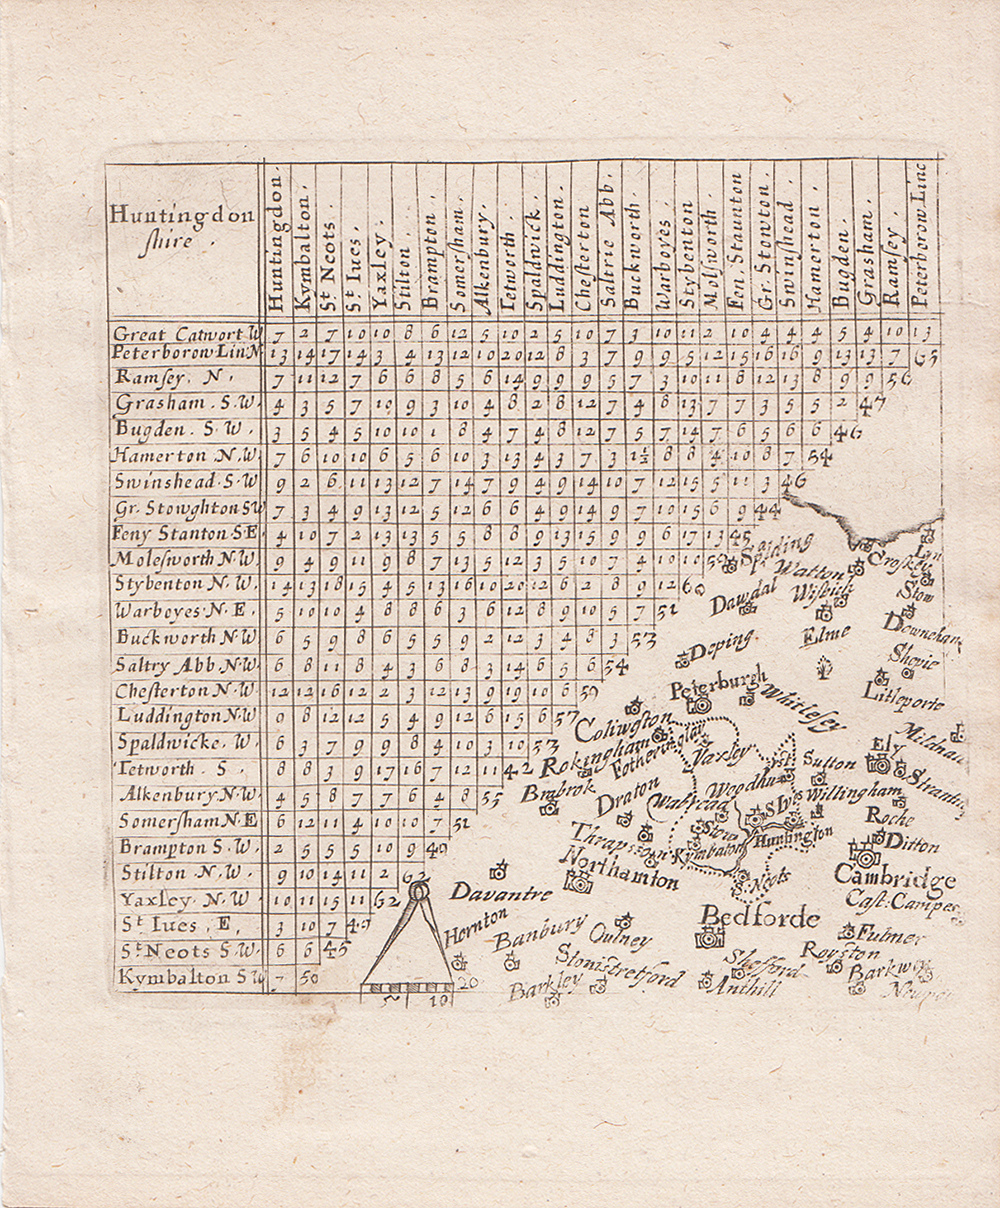 Huntingdon
shire .
Huntingdon.
Kymbalton.
St Neots
St Iues.
Yaxley.
Stilton
Brampton .
Somersham.
Alkenbury.
Tetworth
Spaldwick.
Luddington.
Chesterton
Saltrie Abb.
Buckworth.
Warboyes.
Stybenton
Molsworth
Fen. Staunton
Gr. Stowton.
Swinshead.
Hamerton.
Bugden.
Grasham.
Ramsey.
Peterborow Linc
Great Catwort W 7 2 7 10 10 8 6 12 5 10 2 5 10 7 3 10 11 2 10 4 4 4 5 4 10 13
Peterborow Lin N 13 14 17 14 3 4 13 12 10 20 12 8 3 7 9 9 5 12 15 16 16 9 13 13 7 65
Ramsey. N. 7 11 12 7 6 6 8 5 6 14 9 9 9 5 7 3 10 11 8 12 13 8 9 9 56
Grasham. S. W. 4 3 5 7 10 9 3 10 4 8 2 8 12 7 4 8 13 7 7 3 5 5 2 47
Bugden. S. W. 3 5 4 5 10 10 1 8 4 7 4 8 12 7 5 7 14 7 6 5 6 6 46
Hamerton N. W. 7 6 10 10 6 5 6 10 3 13 4 3 7 3 1½ 8 8 4 10 8 7 54
Swinshead. S. W 9 2 6 11 13 12 7 14 7 9 4 9 14 10 7 12 15 5 11 3 46
Gr. Stowghton SW 7 3 4 9 13 12 5 12 6 6 4 9 14 9 7 10 15 6 9 44
Feny Stanton S. E 4 10 7 2 13 13 5 5 8 8 9 13 15 9 9 6 17 13 45
Molesworth N. W 9 4 9 11 9 8 7 13 5 12 3 5 10 7 4 10 10
Stybenton N. W. 14 13 18 15 4 5 13 16 10 20 12 6 2 8 9 12 60
Warboyes N. E. 5 10 10 4 8 8 6 3 6 12 8 9 10 5 7 51
Buckworth N. W 6 5 9 8 6 5 5 9 2 12 3 4 8 3 53
Saltry Abb. N. W 6 8 11 8 4 3 6 8 3 14 6 5 6 54
Chesterton N. W. 12 12 16 12 2 3 12 13 9 19 10 6 59
Luddington N. W 9 8 12 12 5 4 9 12 6 15 6 57
Spaldwicke. W. 6 3 7 9 9 8 4 10 3 10 53
Tetworth. S. 8 8 3 9 17 16 7 12 11 42
Alkenbury N. W. 4 5 8 7 7 6 4 8 55
Somersham N. E 6 12 11 4 10 10 7 51
Brampton S. W. 2 5 5 5 10 9 49
Stilton N. W. 9 10 14 11 2 62
Yaxley. N. W 10 11 15 11 62
St Iues, E, 3 10 7 49
St Neots S. W. 6 6 45
Kymbalton S W 7 50
10 20
Spalding
Watton
Croyley
Dawdal
Wisbich
Stow
Elme
Downeham
Deping
Shepie
Peterburgh
Whitlesey
Litleporte
Coliwston
Rokingham
Fotheringhay
Yaxley
Ely
Mildnau
Sutton
Brabrok
Draton
Wabread
Woodhu
Willingham
Roche
Thrapston
Stow
Kymbaton
Huntington
Ditton
Northamton
S. Neots
Cambridge
Cast: Campes
Davantre
Bedforde
Hornton
Banbury
Oulney
Fulmer
Stonistretford
Shefford
Royston
Barkway
Barkley
Anthill